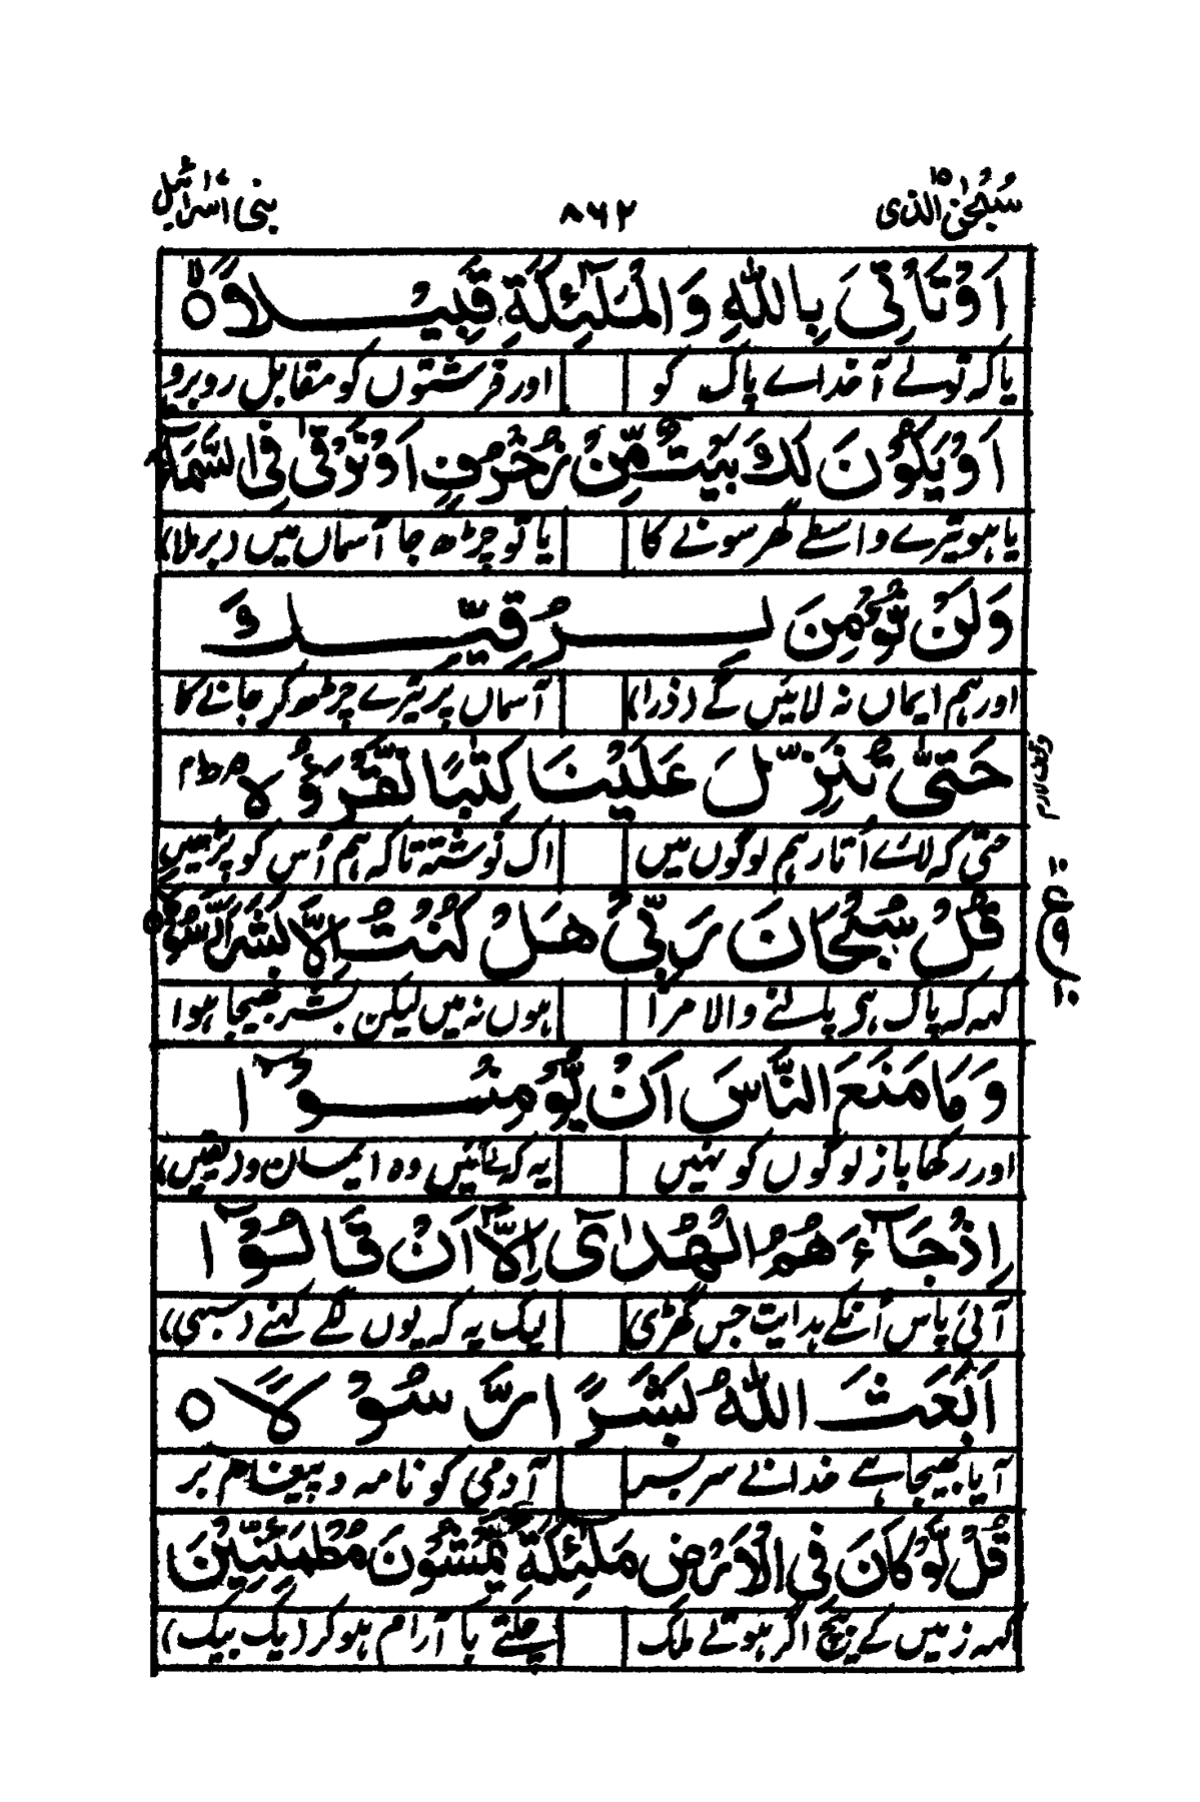 سُبْحٰنَ الذی ۱۵ ۸۶۲ بنی اسرائیل
اَوْ تَاْتِیَ بِاللّٰهِ وَالْمَلٰٓئِكَةِ قَبِیْلًا ۙ
یا کہ تو لے آ خداے پاک کو اور فرشتوں کو مقابل روبرو
اَوْ یَكُوْنَ لَكَ بَیْتٌ مِّنْ زُخْرُفٍ اَوْ تَرْقٰی فِی السَّمَآءِ
یا ہو تیرے واسطے گھر سونے کا یا تو چڑھ جا آسماں میں (برملا)
وَلَنْ نُّؤْمِنَ لِرُقِیِّكَ
اور ہم ایماں نہ لائیں گے (ذرا) آسماں پر تیرے چڑھ کر جانے کا
حَتّٰی تُنَزِّلَ عَلَیْنَا كِتٰبًا نَّقْرَؤُهٗ ؕ
حتیٰ کہ لائے اُتار ہم لوگوں میں اک نوشتہ تاکہ ہم اُس کو پڑھیں
قُلْ سُبْحَانَ رَبِّیْ هَلْ كُنْتُ اِلَّا بَشَرًا رَّسُوْلًا
کہہ کہ پاک ہی پالنے والا مرا ہوں نہ میں لیکن بشر بھیجا ہوا
وَمَا مَنَعَ النَّاسَ اَنْ یُّؤْمِنُوْٓا
اور رکھا باز لوگوں کو نہیں یہ کہ لائیں وہ ایمان و یقیں
اِذْ جَآءَهُمُ الْهُدٰٓی اِلَّآ اَنْ قَالُوْٓا
آئی پاس اُنکے ہدایت جس گھڑی لیک یہ کہ یوں لگے کہنے (سبھی)
اَبَعَثَ اللّٰهُ بَشَرًا رَّسُوْلًا
آیا بھیجا ہے خدا نے سر بسر آدمی کو نامہ و پیغام بر
قُلْ لَّوْ كَانَ فِی الْاَرْضِ مَلٰٓئِكَةٌ یَّمْشُوْنَ مُطْمَئِنِّیْنَ
کہہ زمیں کے بیچ اگر ہوتے ملک چلتے با آرام ہو کر (یک بیک)